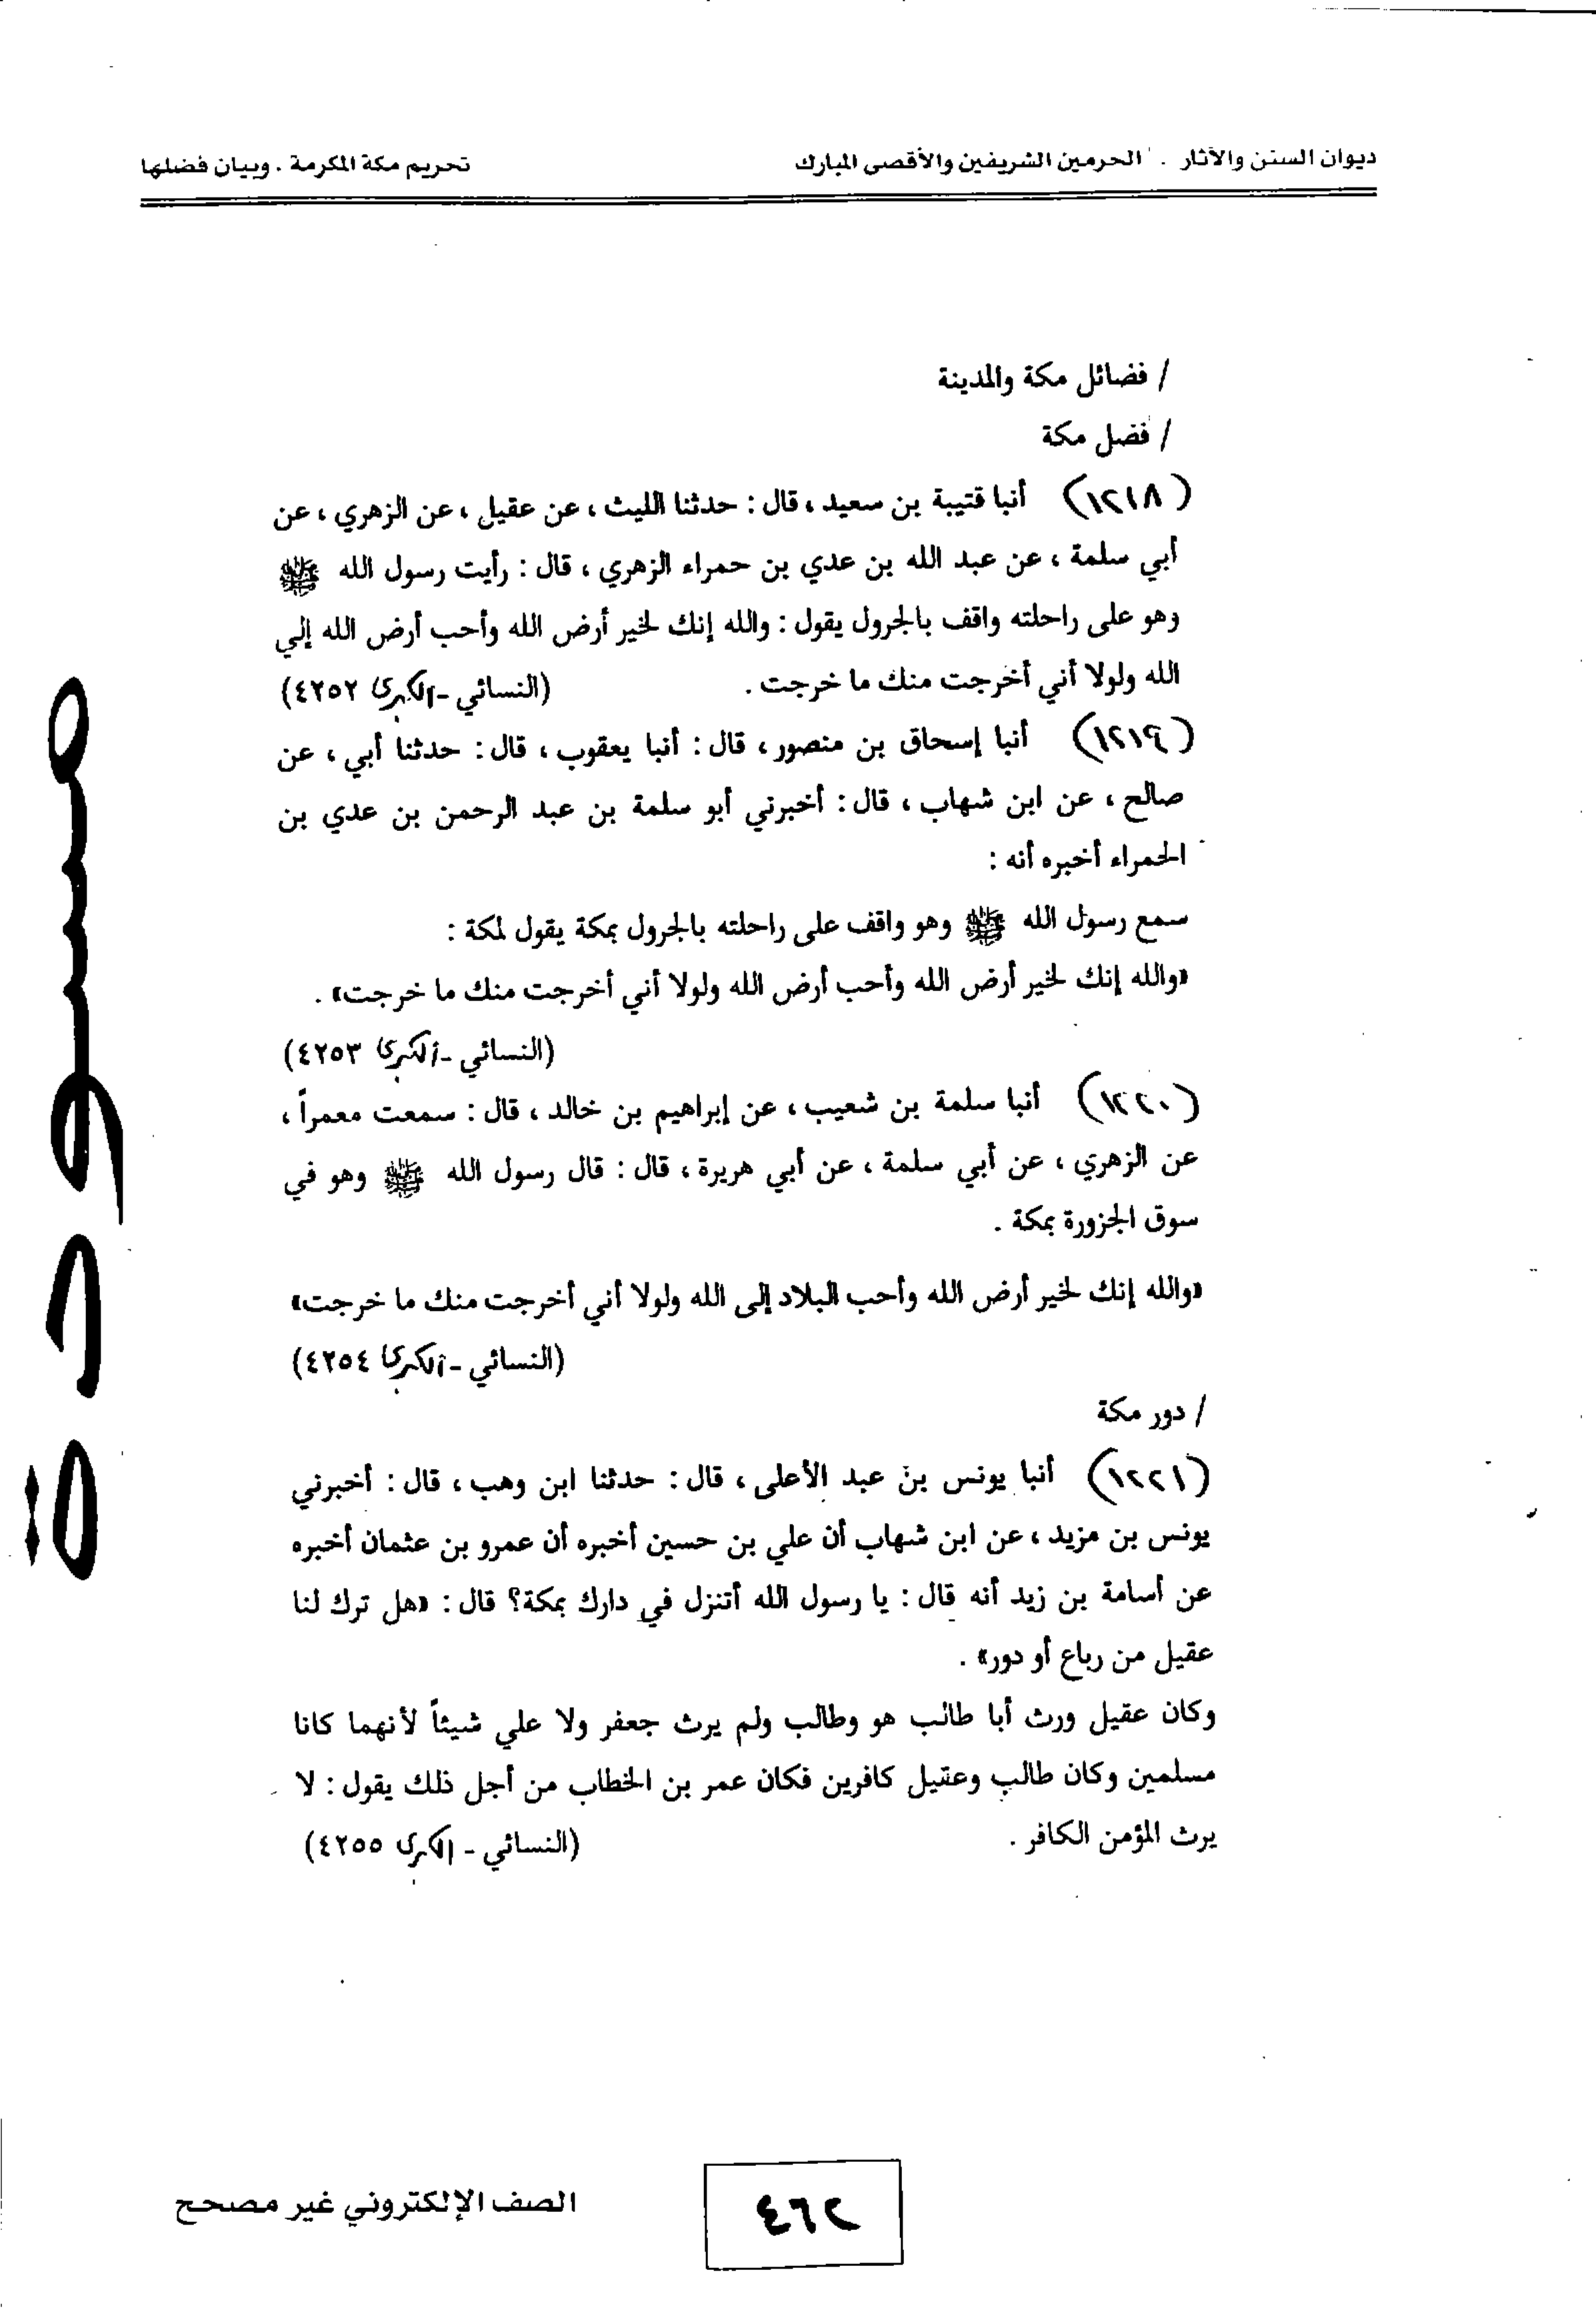 ديوان السنن والآثار . الحرمين الشريفين والأقصى المبارك
تحريم مكة المكرمة . وبيان فضلها
/ فضائل مكة والمدينة
/ فضل مكة
(١٢١٨) أنبا قتيبة بن سعيد ، قال : حدثنا الليث ، عن عقيل ، عن الزهري ، عن
أبي سلمة ، عن عبد الله بن عدي بن حمراء الزهري ، قال : رأيت رسول الله ﷺ
وهو على راحلته واقف بالجرول يقول : والله إنك لخير أرض الله وأحب أرض الله إلي
الله ولولا أني أخرجت منك ما خرجت . (النسائي - الكبرى ٤٢٥٢)
(١٢١٩) أنبا إسحاق بن منصور ، قال : أنبا يعقوب ، قال : حدثنا أبي ، عن
صالح ، عن ابن شهاب ، قال : أخبرني أبو سلمة بن عبد الرحمن بن عدي بن
الحمراء أخبره أنه :
سمع رسول الله ﷺ وهو واقف على راحلته بالجرول بمكة يقول لمكة :
«والله إنك لخير أرض الله وأحب أرض الله ولولا أني أخرجت منك ما خرجت» .
(النسائي - الكبرى ٤٢٥٣)
(١٢٢٠) أنبا سلمة بن شعيب ، عن إبراهيم بن خالد ، قال : سمعت معمراً ،
عن الزهري ، عن أبي سلمة ، عن أبي هريرة ، قال : قال رسول الله ﷺ وهو في
سوق الجزورة بمكة .
«والله إنك لخير أرض الله وأحب البلاد إلى الله ولولا أني أخرجت منك ما خرجت»
(النسائي - الكبرى ٤٢٥٤)
/ دور مكة
(١٢٢١) أنبا يونس بن عبد الأعلى ، قال : حدثنا ابن وهب ، قال : أخبرني
يونس بن مزيد ، عن ابن شهاب أن علي بن حسين أخبره أن عمرو بن عثمان أخبره
عن أسامة بن زيد أنه قال : يا رسول الله أتنزل في دارك بمكة؟ قال : «هل ترك لنا
عقيل من رباع أو دور» .
وكان عقيل ورث أبا طالب هو وطالب ولم يرث جعفر ولا علي شيئاً لأنهما كانا
مسلمين وكان طالب وعقيل كافرين فكان عمر بن الخطاب من أجل ذلك يقول : لا
يرث المؤمن الكافر . (النسائي - الكبرى ٤٢٥٥)
مسودة
٤٦٢
الصف الإلكتروني غير مصحح